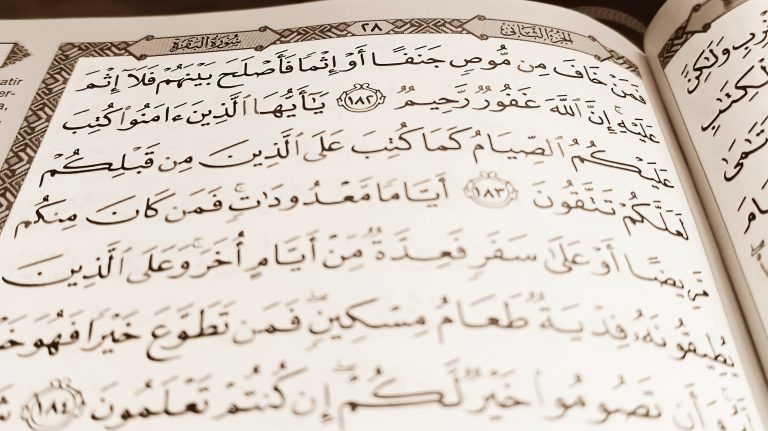 سُورَةُ البَقَرَةِ ٢٨ الجُزْءُ الثَّانِي
فَمَنْ خَافَ مِن مُّوصٍ جَنَفًا أَوْ إِثْمًا فَأَصْلَحَ بَيْنَهُمْ فَلَآ إِثْمَ
عَلَيْهِ ۚ إِنَّ ٱللَّهَ غَفُورٌ رَّحِيمٌ ١٨٢ يَٰٓأَيُّهَا ٱلَّذِينَ ءَامَنُوا۟ كُتِبَ
عَلَيْكُمُ ٱلصِّيَامُ كَمَا كُتِبَ عَلَى ٱلَّذِينَ مِن قَبْلِكُمْ
لَعَلَّكُمْ تَتَّقُونَ ١٨٣ أَيَّامًا مَّعْدُودَٰتٍ ۚ فَمَن كَانَ مِنكُم
مَّرِيضًا أَوْ عَلَىٰ سَفَرٍ فَعِدَّةٌ مِّنْ أَيَّامٍ أُخَرَ ۚ وَعَلَى ٱلَّذِينَ
يُطِيقُونَهُۥ فِدْيَةٌ طَعَامُ مِسْكِينٍ ۖ فَمَن تَطَوَّعَ خَيْرًا فَهُوَ
وَأَن تَصُومُوا۟ خَيْرٌ لَّكُمْ ۖ إِن كُنتُمْ تَعْلَمُونَ ١٨٤